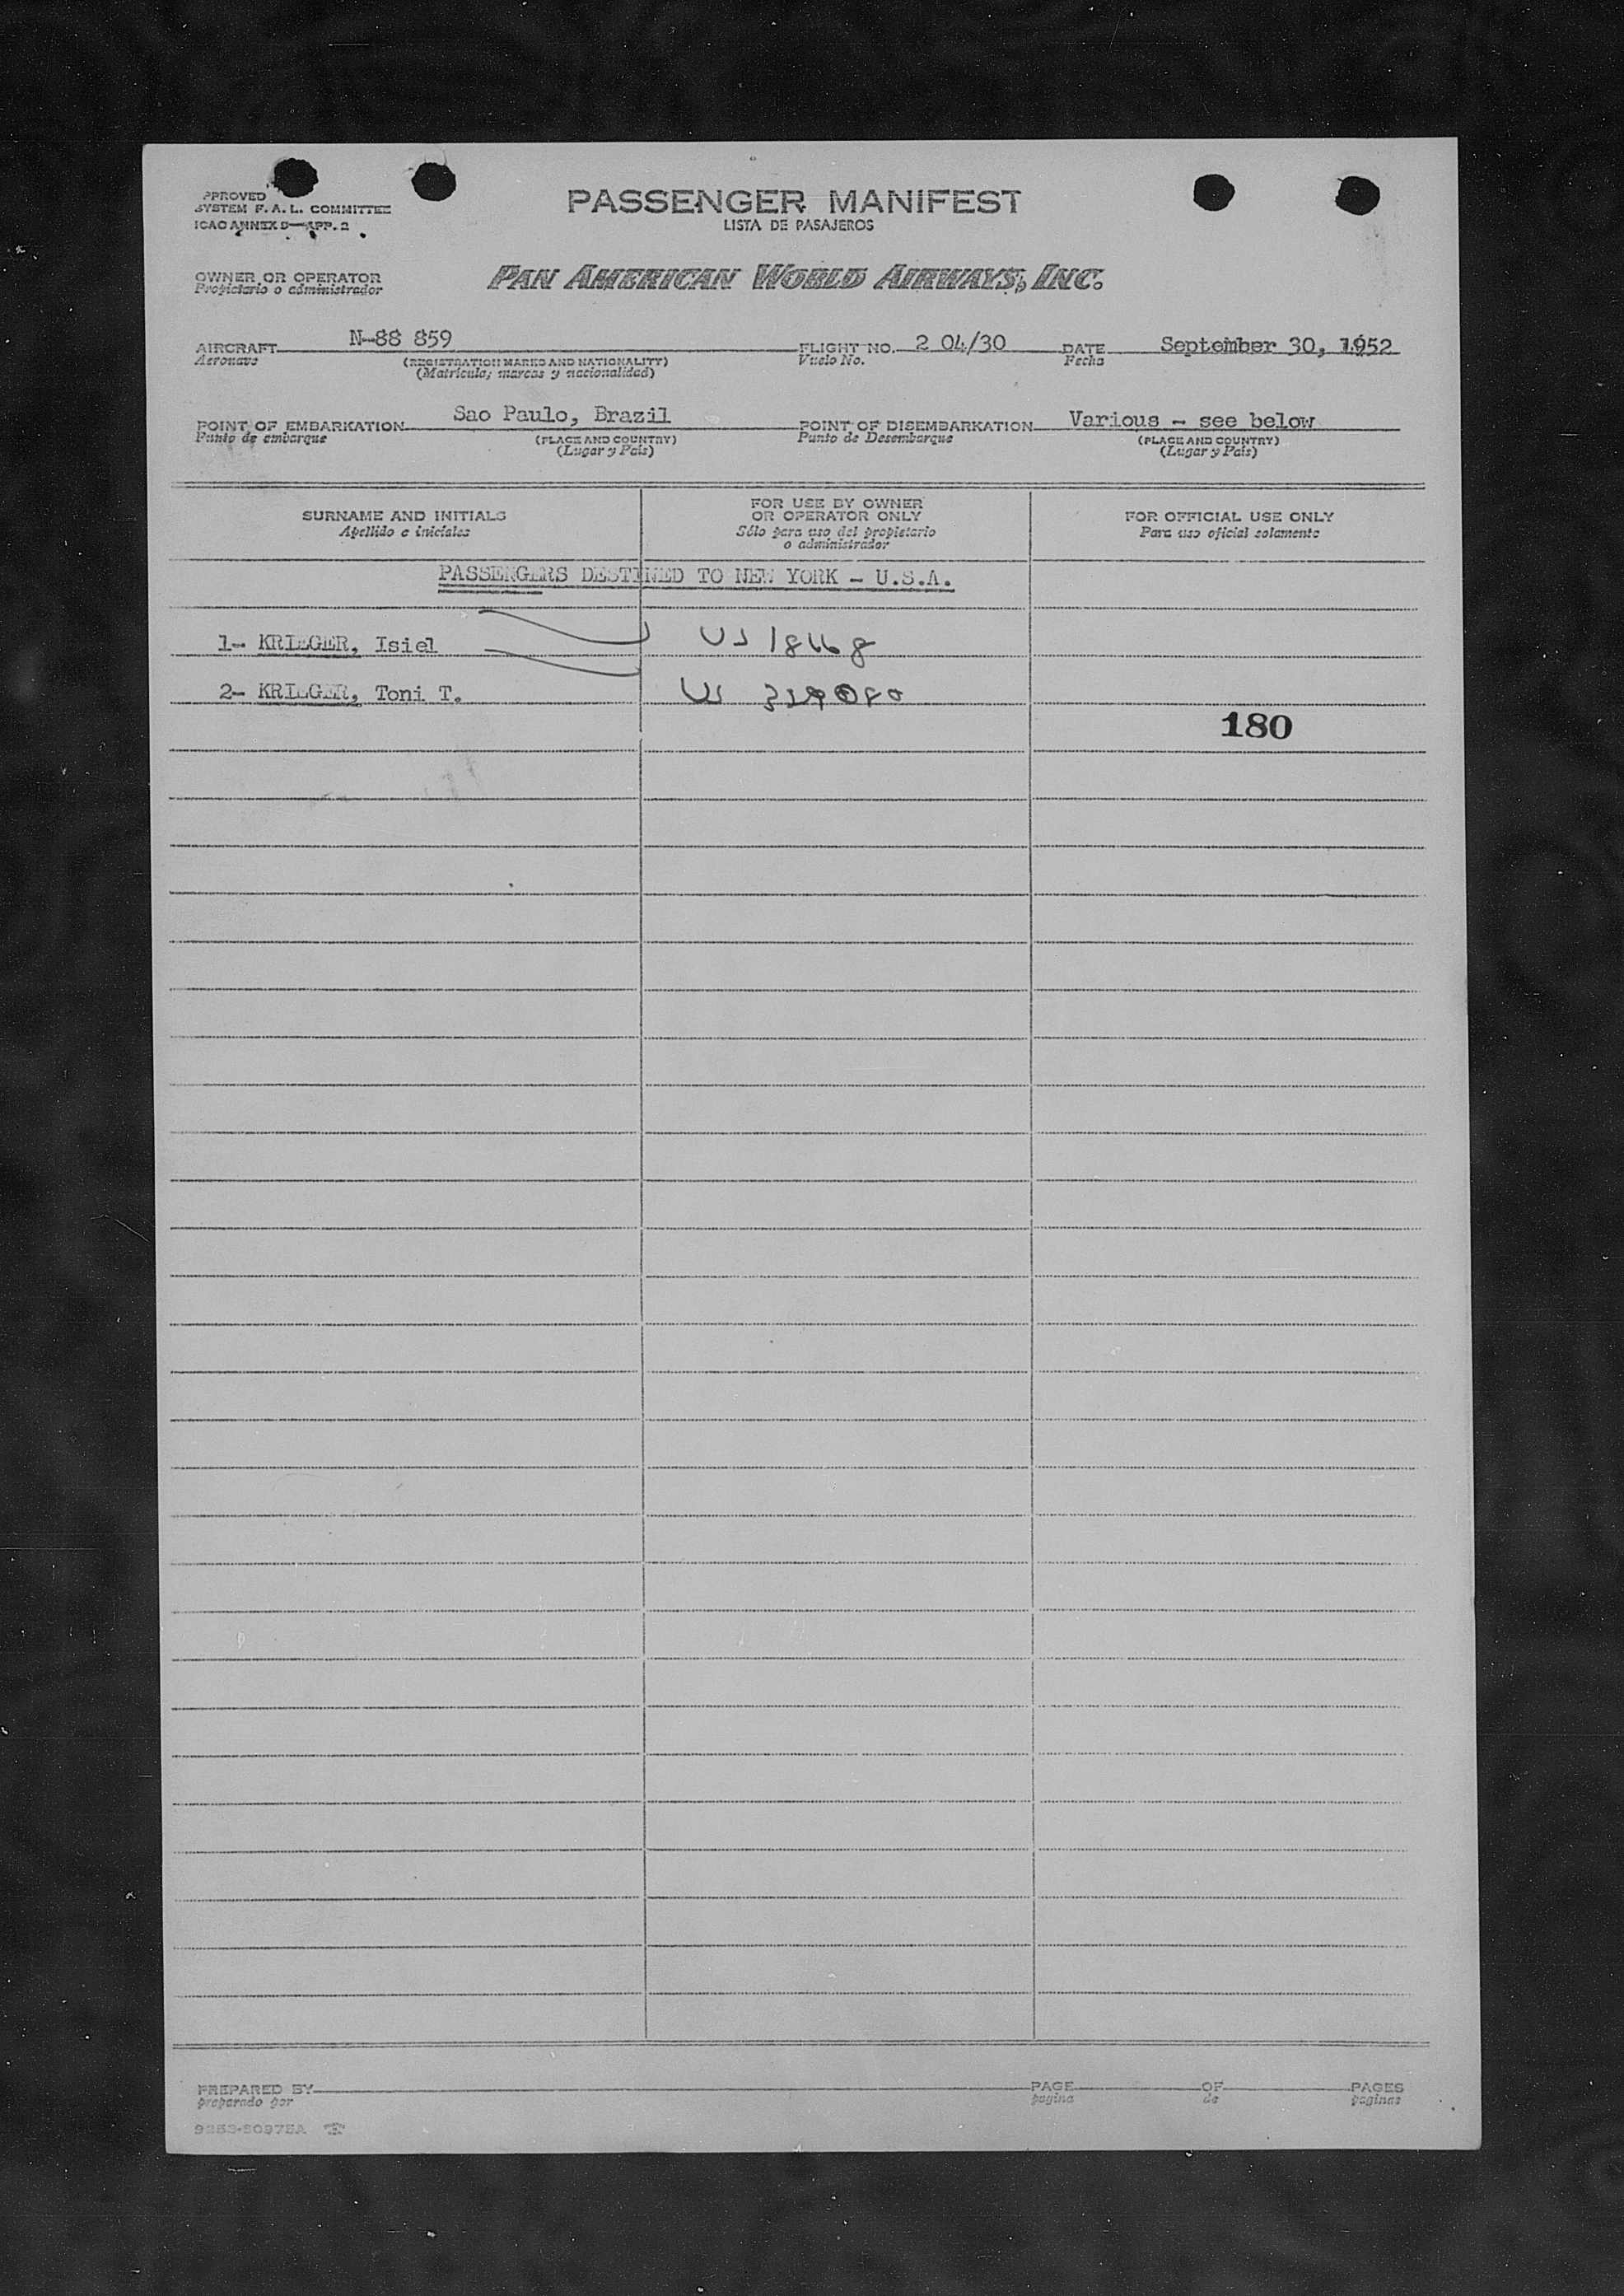 PPROVED
SYSTEM F. A. L. COMMITTEE
ICAO ANNEX 9—APP. 2
PASSENGER MANIFEST
LISTA DE PASAJEROS
OWNER OR OPERATOR
Propietario o administrador
PAN AMERICAN WORLD AIRWAYS, INC.
AIRCRAFT N-88 859 FLIGHT NO. 2 04/30 DATE September 30, 1952
Aeronave (REGISTRATION MARKS AND NATIONALITY) Vuelo No. Fecha
(Matricula; marcas y nacionalidad)
POINT OF EMBARKATION Sao Paulo, Brazil POINT OF DISEMBARKATION Various - see below
Punto de embarque (PLACE AND COUNTRY) Punto de Desembarque (PLACE AND COUNTRY)
(Lugar y Pais) (Lugar y Pais)
SURNAME AND INITIALS
Apellido e iniciales
FOR USE BY OWNER
OR OPERATOR ONLY
Sólo para uso del propietario
o administrador
FOR OFFICIAL USE ONLY
Para uso oficial solamente
PASSENGERS DESTINED TO NEW YORK - U.S.A.
1- KRIEGER, Isiel US
2- KRIEGER, Toni T. US
180
PREPARED BY PAGE OF PAGES
preparado por pagina de paginas